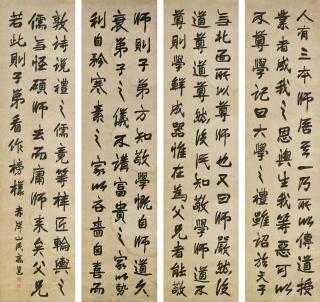 人有三本師居其一乃所以成
業者成我之恩與生我等惡可以
不尊學記曰大學之禮雖詔於天子
無北面所以尊師也又曰師嚴然後
道尊道尊然後民知敬學
尊則學成器惟在為父兄者能敬
師則子弟方知敬學慨自師道久
衰弟子之儀不講富貴之家而勢
利自矜寒素之家以吝嗇自喜而
敦詩說禮之儒竟等梓匠輪輿之
怪碩師去而庸師來矣父兄
若此則子弟看作榜樣
山民